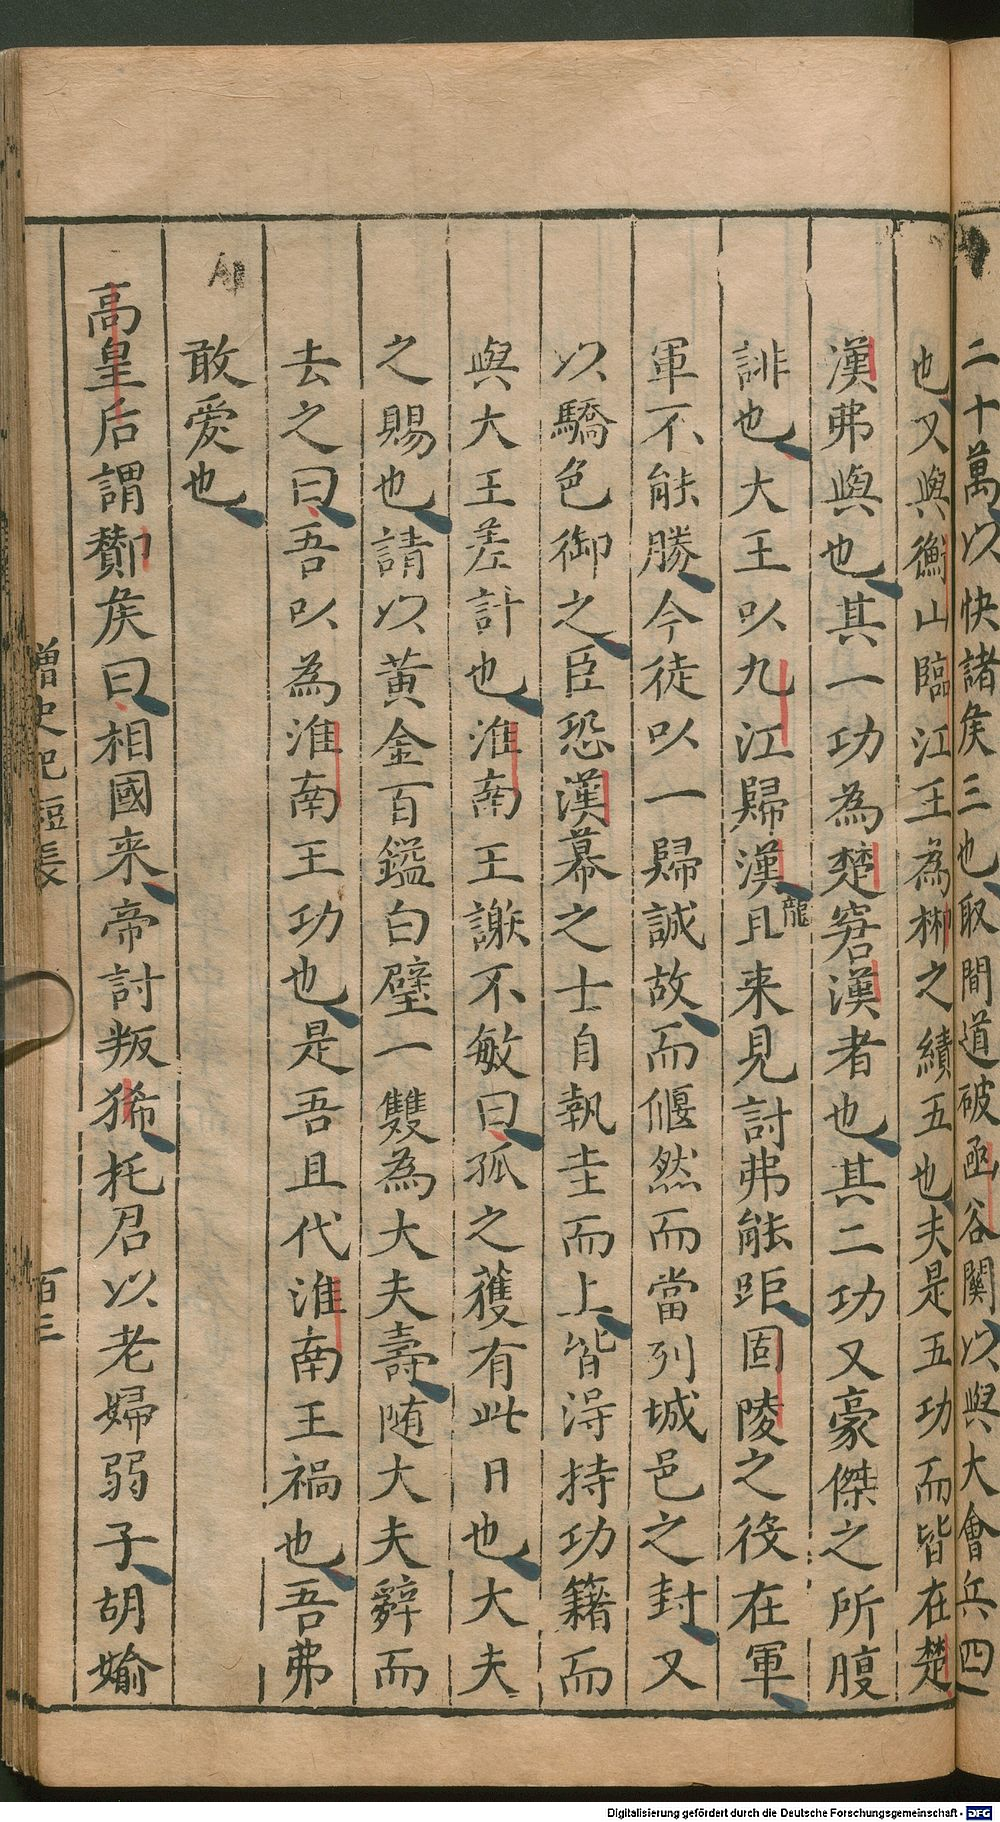 二十萬以快諸矦三也取間道破函谷關以與大會兵四
也又與衡山臨江王為郴之績五也夫是五功而皆在楚
漢弗與也其一功為楚窘漢者也其二功又豪傑之所腹
誹也大王以九江歸漢龍且来見討弗能距固陵之役在軍
軍不能勝今徒以一歸誠故而偃然而當列城邑之封又
以驕色御之臣恐漢幕之士自執圭而上皆淂持功籍而
與大王差計也淮南王謝不敏曰孤之獲有此日也大夫
之賜也請以黄金百鎰白璧一雙為大夫壽随大夫辭而
去之曰吾以為淮南王功也是吾且代淮南王禍也吾弗
敢愛也
高皇后謂酇矦曰相國来帝討叛豨托君以老婦弱子胡媮
史記短長
百三
Digitalisierung gefördert durch die Deutsche Forschungsgemeinschaft - DFG